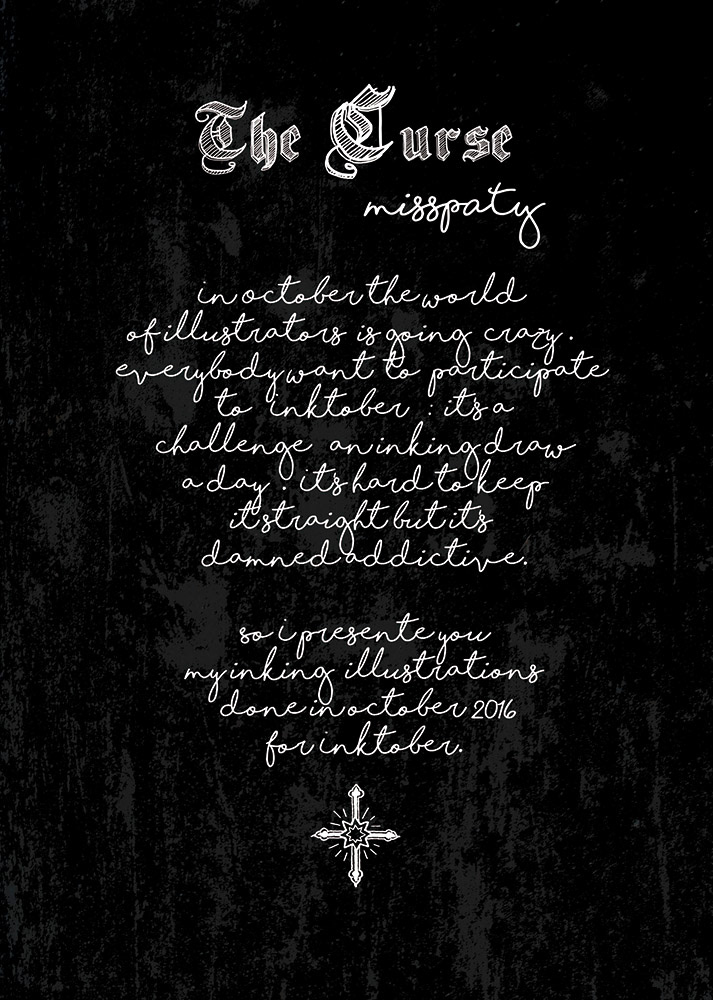 The Curse
misspaty
in october the world
of illustrators is going crazy.
everybody want to participate
to inktober : it's a
challenge an inking draw
a day . it's hard to keep
it straight but it's
damned addictive.
so i presente you
my inking illustrations
done in october 2016
for inktober.